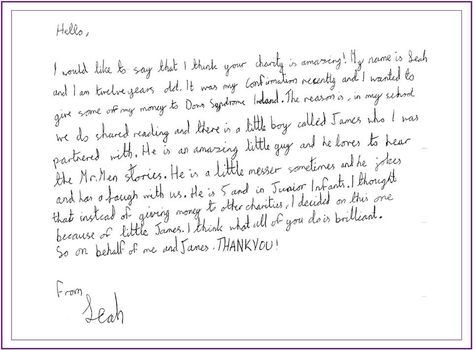 Hello,
I would like to say that I think your charity is amazing! My name is Leah
and I am twelve years old. It was my Confirmation recently and I wanted to
give some off my money to Down Syndrome Ireland. The reason is, in my school
we do shared reading and there is a little boy called James who I was
partnered with. He is an amazing little guy and he loves to hear
the Mr. Men stories. He is a little messer sometimes and he jokes
and has a laugh with us. He is 5 and in Junior Infants. I thought
that instead of giving money to other charities, I decided on this one
because of little James. I think what all of you do is brilliant.
So on behalf of me and James. THANKYOU!
From
Leah